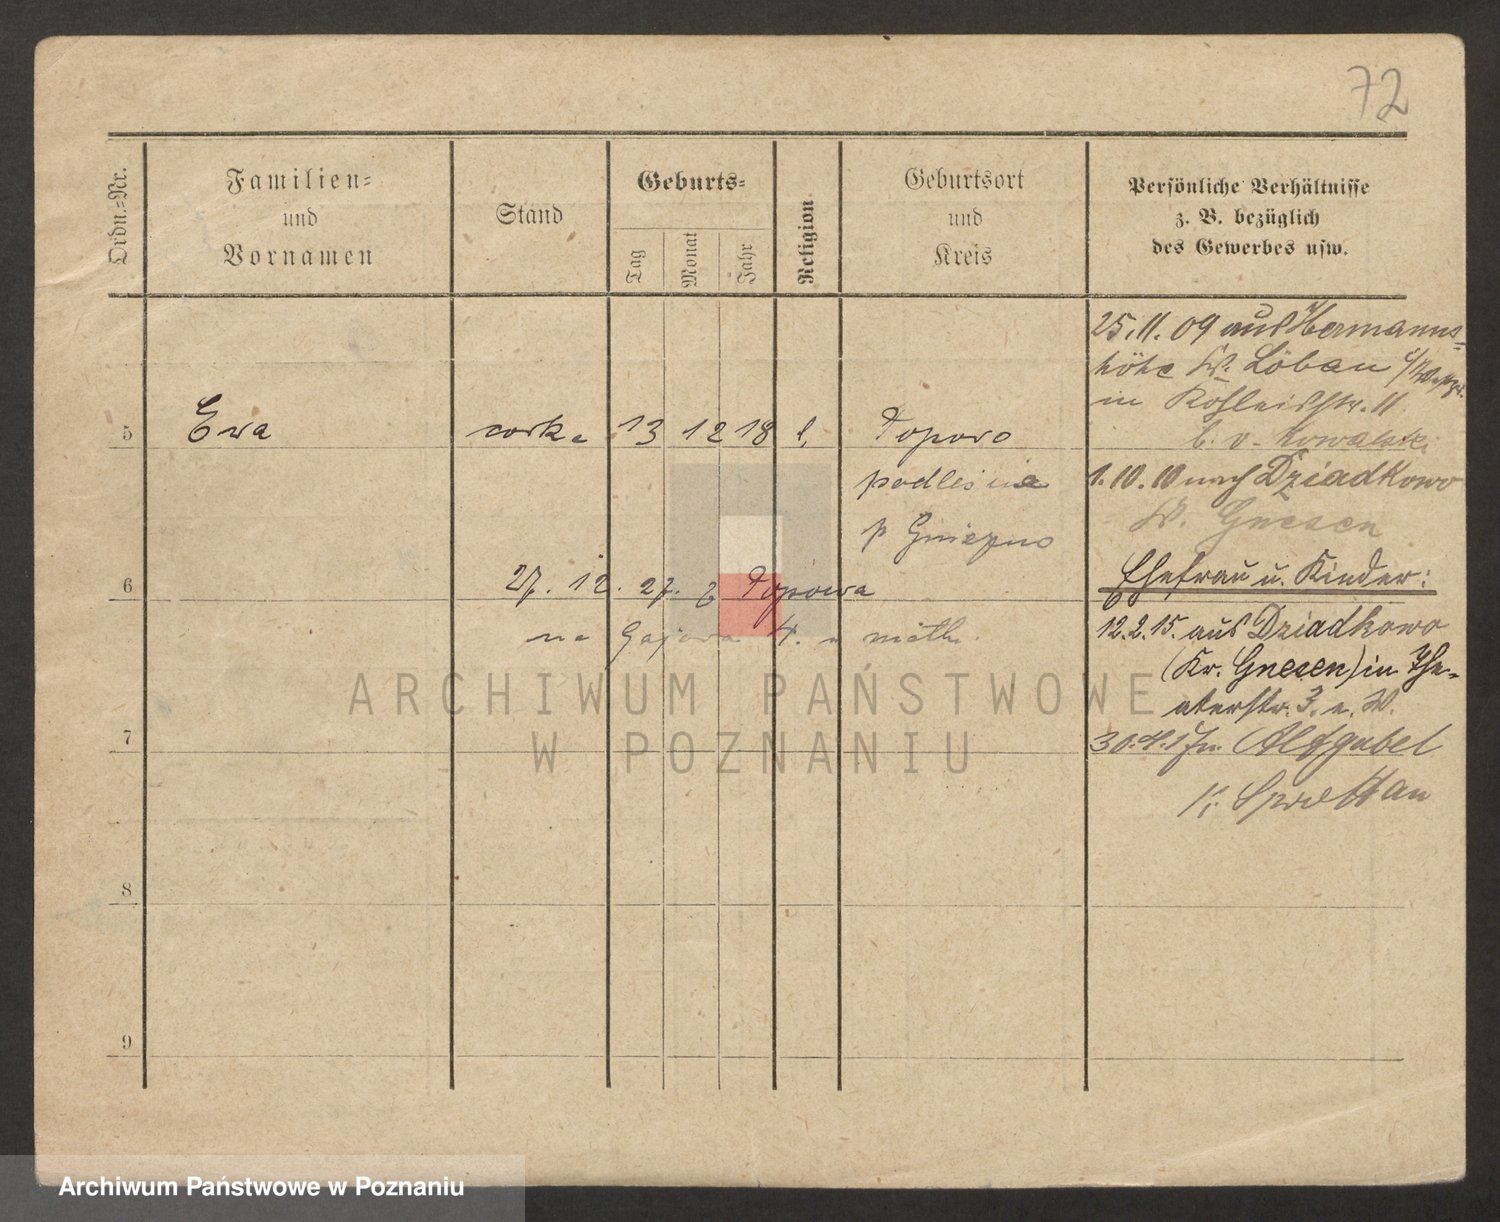 72
Ordn.-Nr.
Familien-
und
Vornamen
Stand
Geburts-
Tag
Monat
Jahr
Religion
Geburtsort
und
Kreis
Persönliche Verhältnisse
z. B. bezüglich
des Gewerbes usw.
5 Ewa corka 13 12 18 Topowo
podlesine
p Gniezno
6 27. 12. 27. z Topowa
na Gajowa 4.
7
8
9
25.11.09 aus Hermanns-
höhe Kr. Löbau i/Westpr.
in 11
b. v. Kowalski
1.10.10 nach Dziadkowo
Kr. Gnesen
Ehefrau u. Kinder:
12.2.15. aus Dziadkowo
(Kr. Gnesen) in The-
aterstr. 3.
30.4.17 n.
K. Sprottau
ARCHIWUM PAŃSTWOWE
W POZNANIU
Archiwum Państwowe w Poznaniu